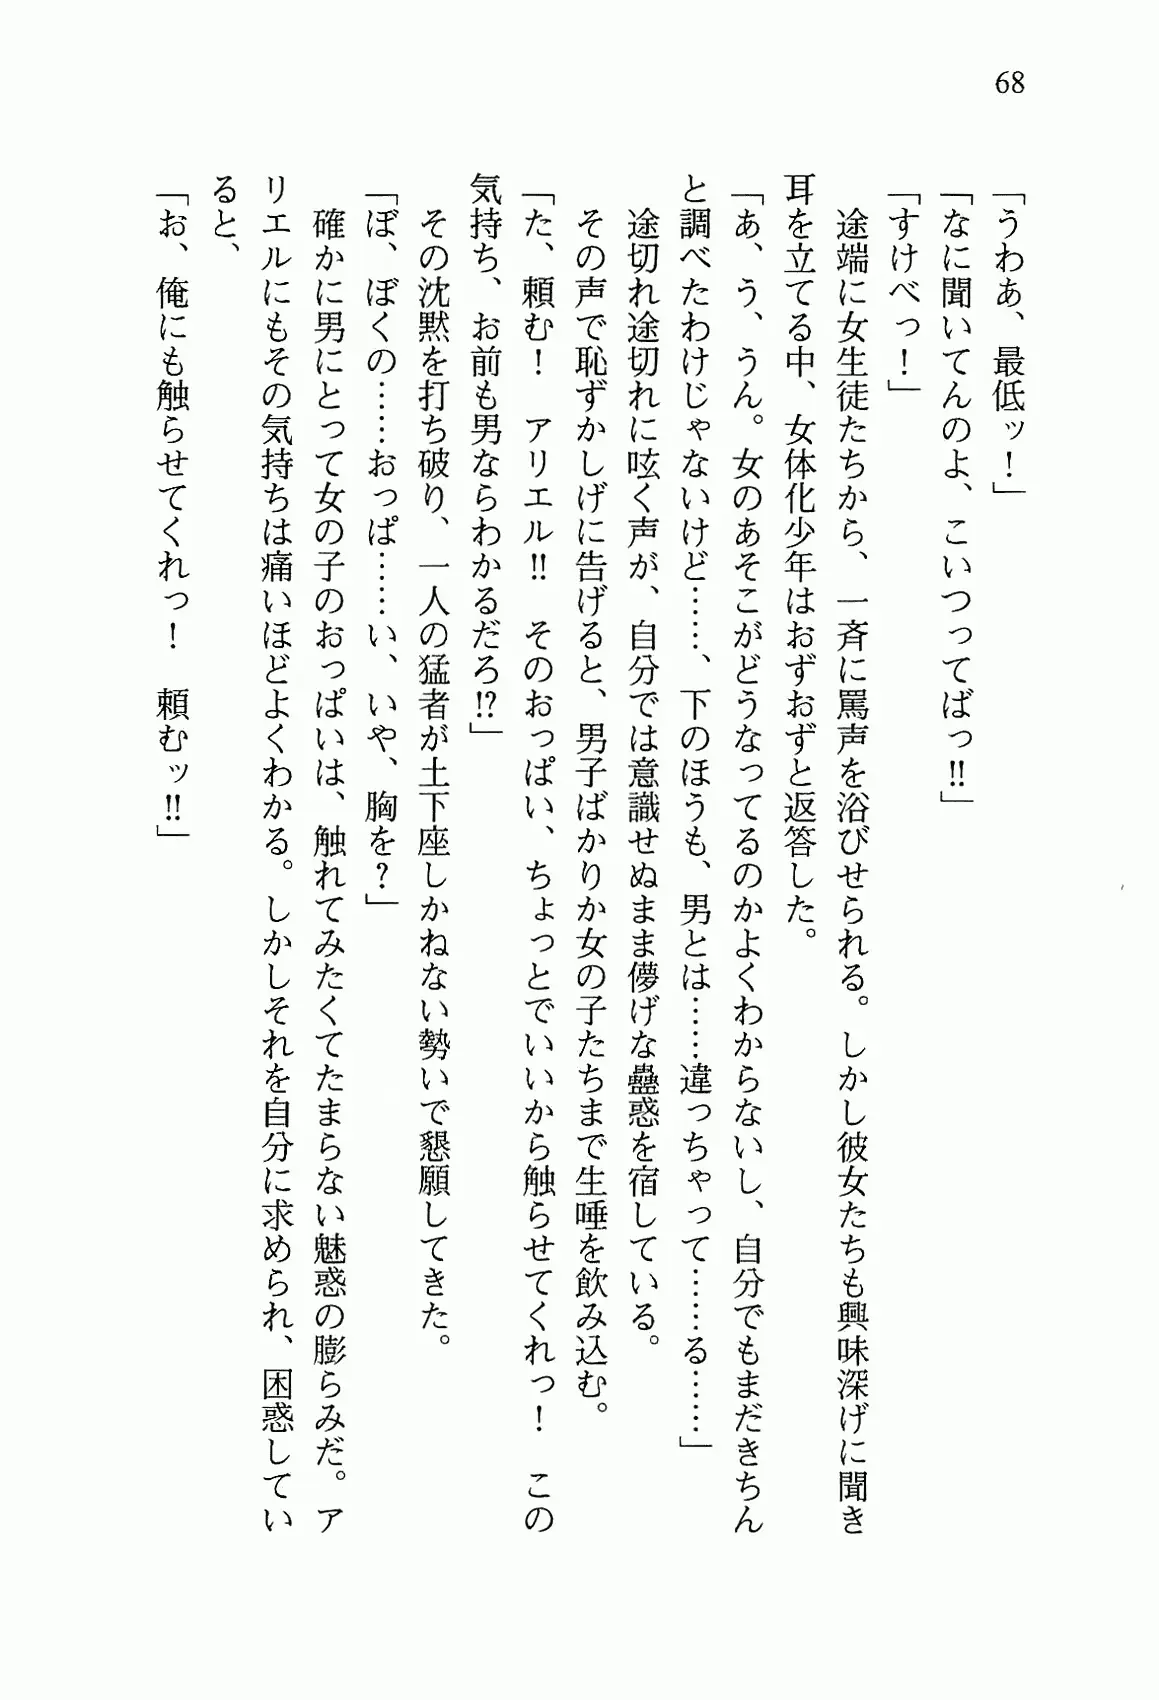 68
「うわあ、最低ッ！」
「なに聞いてんのよ、こいつってばっ‼」
「すけべっ！」
途端に女生徒たちから、一斉に罵声を浴びせられる。しかし彼女たちも興味深げに聞き
耳を立てる中、女体化少年はおずおずと返答した。
「あ、う、うん。女のあそこがどうなってるのかよくわからないし、自分でもまだきちん
と調べたわけじゃないけど……、下のほうも、男とは……違っちゃって……る……」
途切れ途切れに呟く声が、自分では意識せぬまま儚げな蠱惑を宿している。
その声で恥ずかしげに告げると、男子ばかりか女の子たちまで生唾を飲み込む。
「た、頼む！　アリエル‼　そのおっぱい、ちょっとでいいから触らせてくれっ！　この
気持ち、お前も男ならわかるだろ⁉」
その沈黙を打ち破り、一人の猛者が土下座しかねない勢いで懇願してきた。
「ぼ、ぼくの……おっぱ……い、いや、胸を？」
確かに男にとって女の子のおっぱいは、触れてみたくてたまらない魅惑の膨らみだ。ア
リエルにもその気持ちは痛いほどよくわかる。しかしそれを自分に求められ、困惑してい
ると、
「お、俺にも触らせてくれっ！　頼むッ‼」